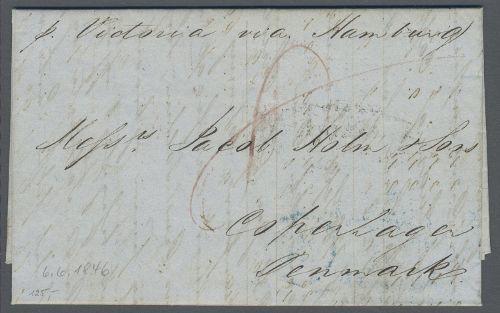 p. Victoria via Hamburg
Messrs. Jacob Holm & Sons
Copenhagen
Denmark
6.6.1846
125,-